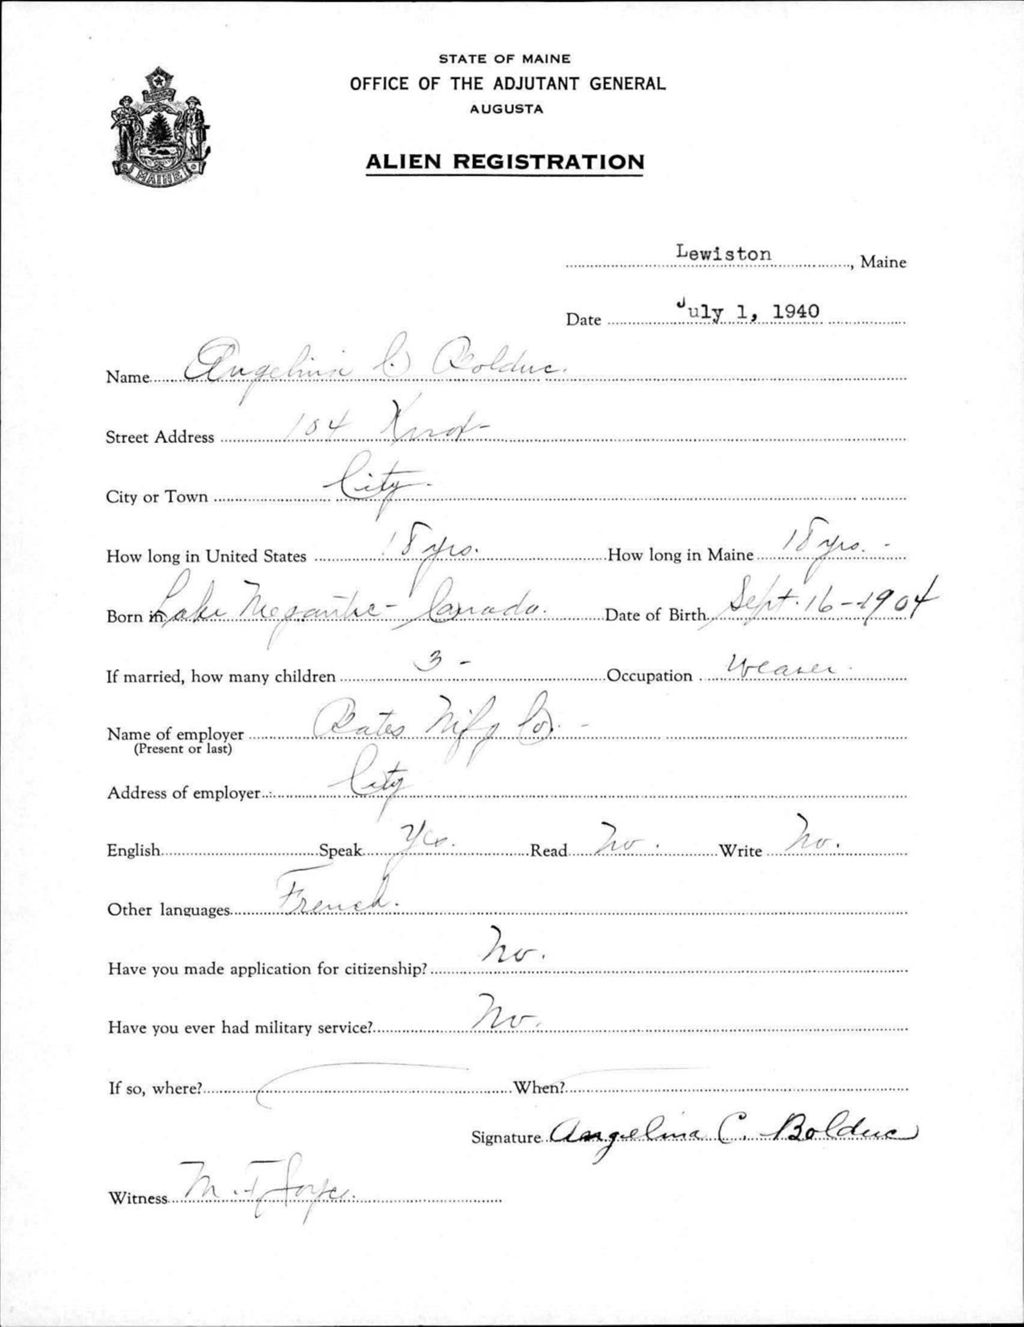 STATE OF MAINE
OFFICE OF THE ADJUTANT GENERAL
AUGUSTA
ALIEN REGISTRATION
MAINE
Lewiston, Maine
Date July 1, 1940
Name Angelina C Bolduc.
Street Address 104 Knox
City or Town City.
How long in United States 18 yrs. How long in Maine 18 yrs. -
Born in Lake Megantic - Canada. Date of Birth Sept. 16 - 1904
If married, how many children 3 - Occupation Weaver.
Name of employer Bates Mfg Co. -
(Present or last)
Address of employer City
English Speak Yes. Read No. Write No.
Other languages French.
Have you made application for citizenship? No.
Have you ever had military service? No.
If so, where? When?
Signature Angelina C. Bolduc
Witness M. F. Joyce.